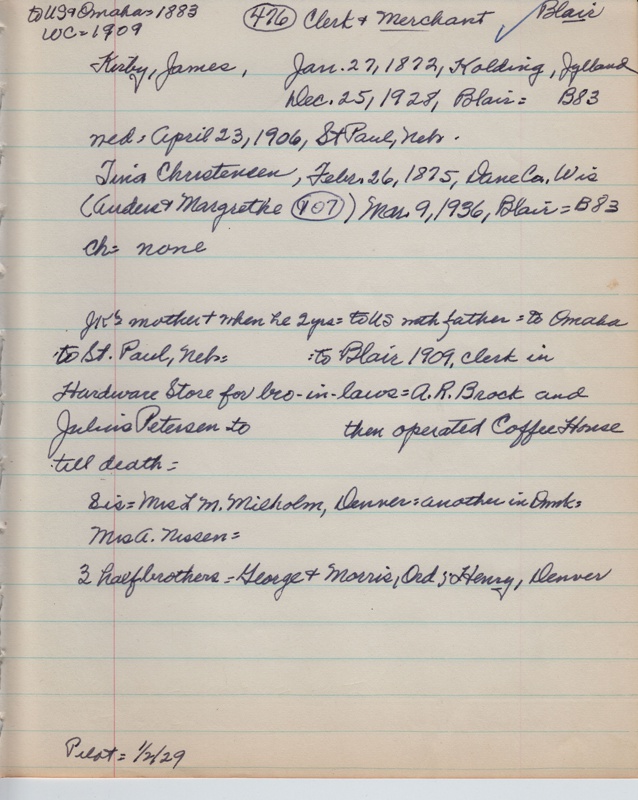 to US & Omaha = 1883 (476) Clerk & Merchant ✓ Blair
WC = 1909
Kirby, James, Jan. 27, 1872, Kolding, Jylland
Dec. 25, 1928, Blair = B83
med = April 23, 1906, St Paul, Nebr.
Tina Christensen, Febr. 26, 1875, Dane Co. Wis
(Anders & Margrethe (407)) Mar. 9, 1936, Blair = B83
ch = none
JK's mother + when he 2 yrs = to US with father = to Omaha
to St. Paul, Neb = : to Blair 1909, clerk in
Hardware Store for bro-in-laws = A.R. Brock and
Julius Petersen to then operated Coffee House
till death =
Sis = Mrs L. M. Milholm, Denver = another in Dmk =
Mrs A. Nissen =
3 half brothers = George & Morris, Ord ; & Henry, Denver
Pilot = 1/2/29